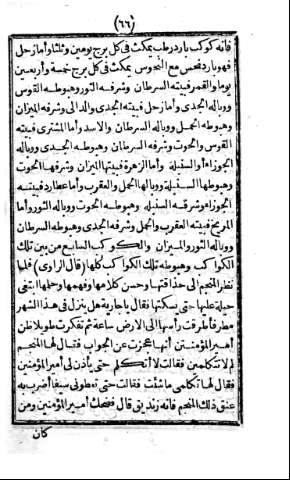 (٦٦)
فانه كوكب بارد رطب يمكث في كل برج يومين وثلثا وأما زحل
فهو بارد نحس مع النحوس يمكث في كل برج خمسة وأربعين
يوما والقمر فبيته السرطان وشرفه الثور وبوباله القوس
وهبوطه الجدى وأما زحل فبيته الجدى والدالى وشرفه الميزان
وهبوطه الحمل ووباله السرطان والاسد وأما المشترى فبيته
القوس والحوت وشرفه السرطان وهبوطه الجدى ووباله
الجوزاء أو السنبلة وأما الزهرة فبيتها الميزان وشرفها الحوت
وهبوطها السنبلة ووبالها الحمل والعقرب وأما عطارد فبيته
الجوزاء وشرفه السنبلة وهبوطه الحوت ووباله الثور وأما
المريخ فبيته العقرب والحمل وشرفه الجدى وهبوطه السرطان
ووباله الثور والميزان والكوكب السابع من بين تلك
الكواكب وهبوطه تلك الكواكب كلها (قال الراوى) فلما
نظر المنجم الى حذاقتها وحسن كلامها وفهمها وحملها ابتغى
حيلة عليها حتى يسكتها فقال يا جارية هل ينزل في هذا الشهر
مطر فأطرقت رأسها الى الارض ساعة ثم تفكرت طويلا فظن
أمير المؤمنين أنها عجزت عن الجواب فقال لها المنجم
لم لا تتكلمين فقالت لا أتكلم حتى يأذن لى أمير المؤمنين
فقال لها تكلمى ما شئت فقالت حتى تعطونى سيفا أضرب به
عنق ذلك المنجم فانه زنديق قال فضحك أمير المؤمنين ومن
كان